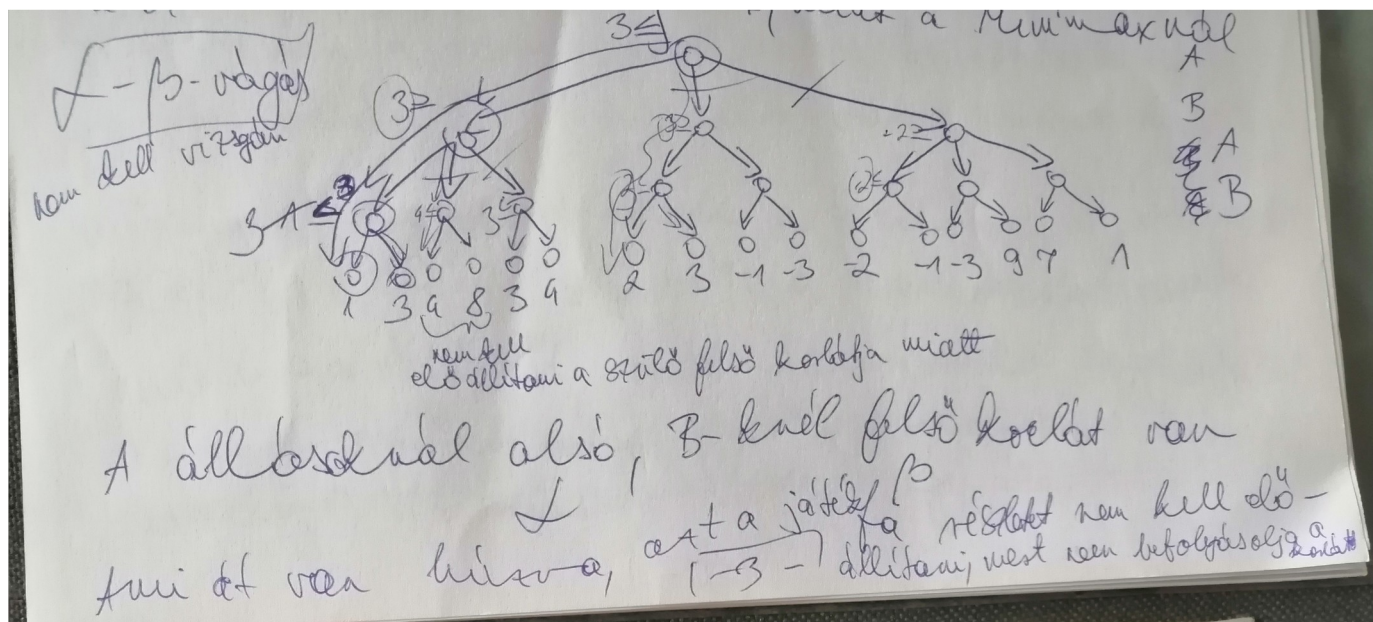 a Minimaxnál
3≤
A
α-β-vágás
nem kell vizsgán
3≥
B
-2≥
A
3 1 ≤
3≤
B
1 3 9 8 3 9 2 3 -1 -3 -2 -1 -3 9 7 1
nem kell
előállítani a szülő felső korlátja miatt
A állásoknál alsó, B-knél felső korlát van
α β
Ami át van húzva, azt a játékfa részletet nem kell elő-
állítani, mert nem befolyásolja a
korlát